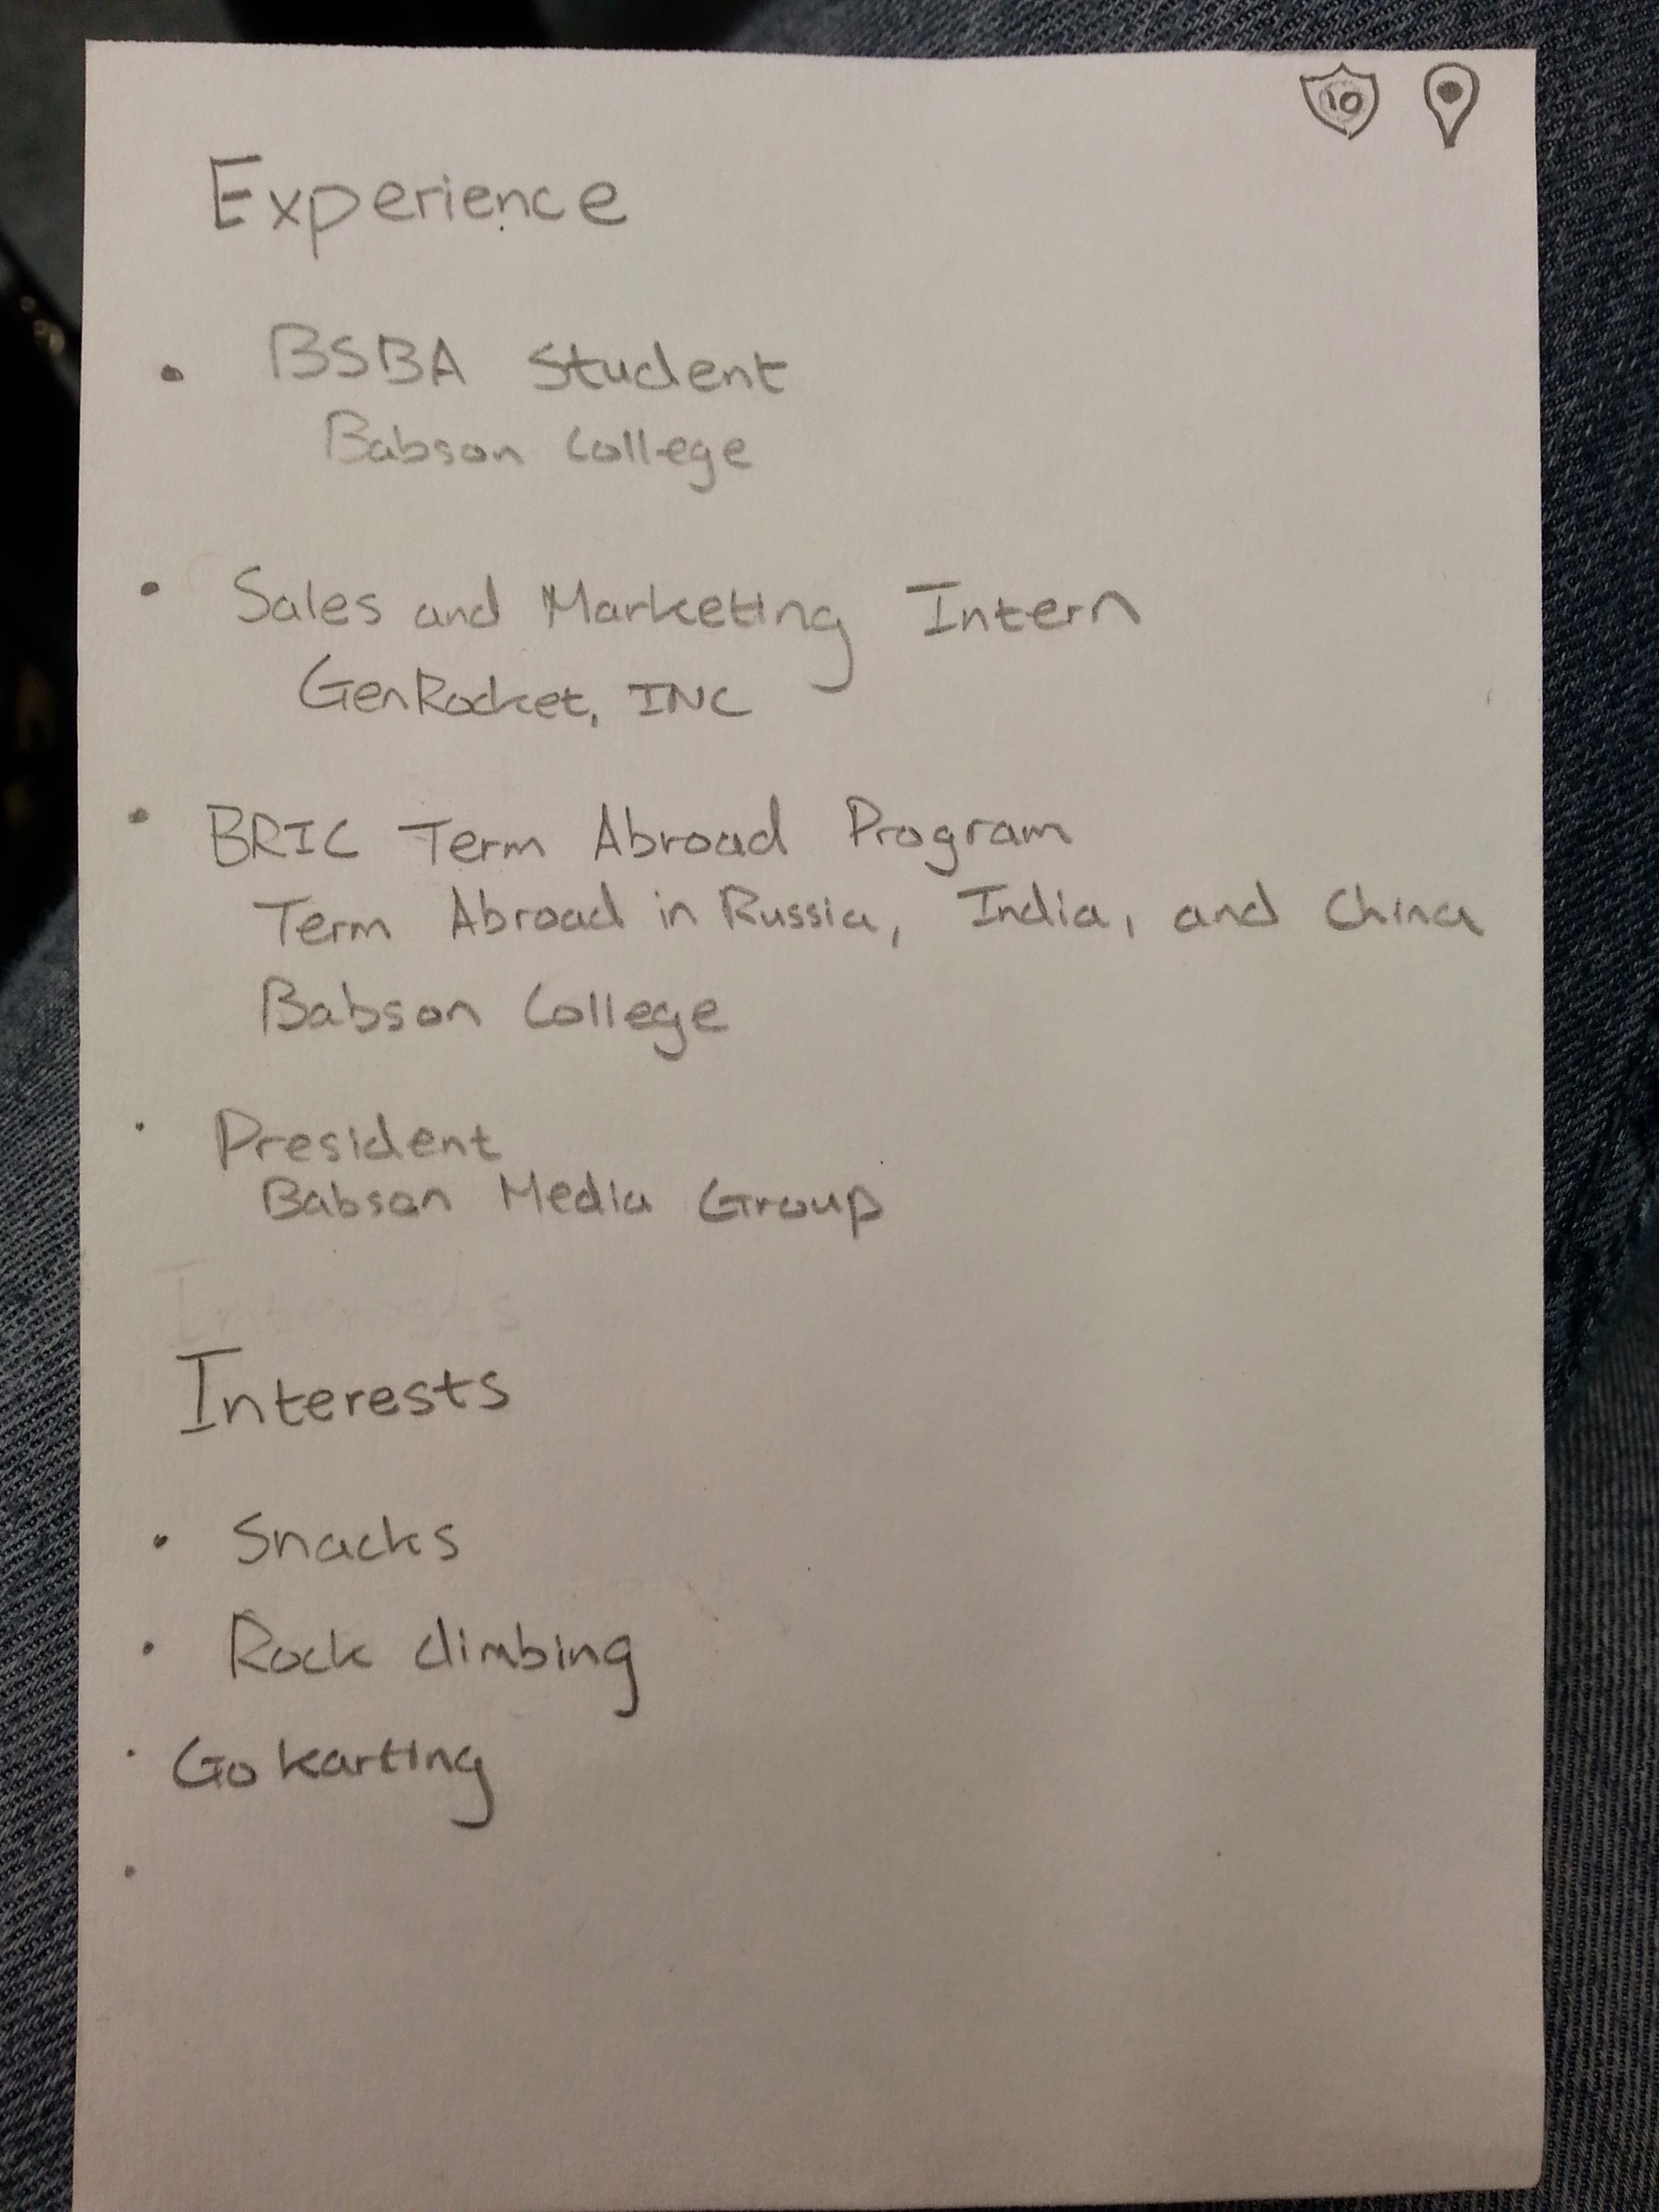 10
Experience
• BSBA Student
Babson College
• Sales and Marketing Intern
GenRocket, INC
• BRIC Term Abroad Program
Term Abroad in Russia, India, and China
Babson College
• President
Babson Media Group
Interests
Interests
• Snacks
• Rock climbing
• Go karting
•